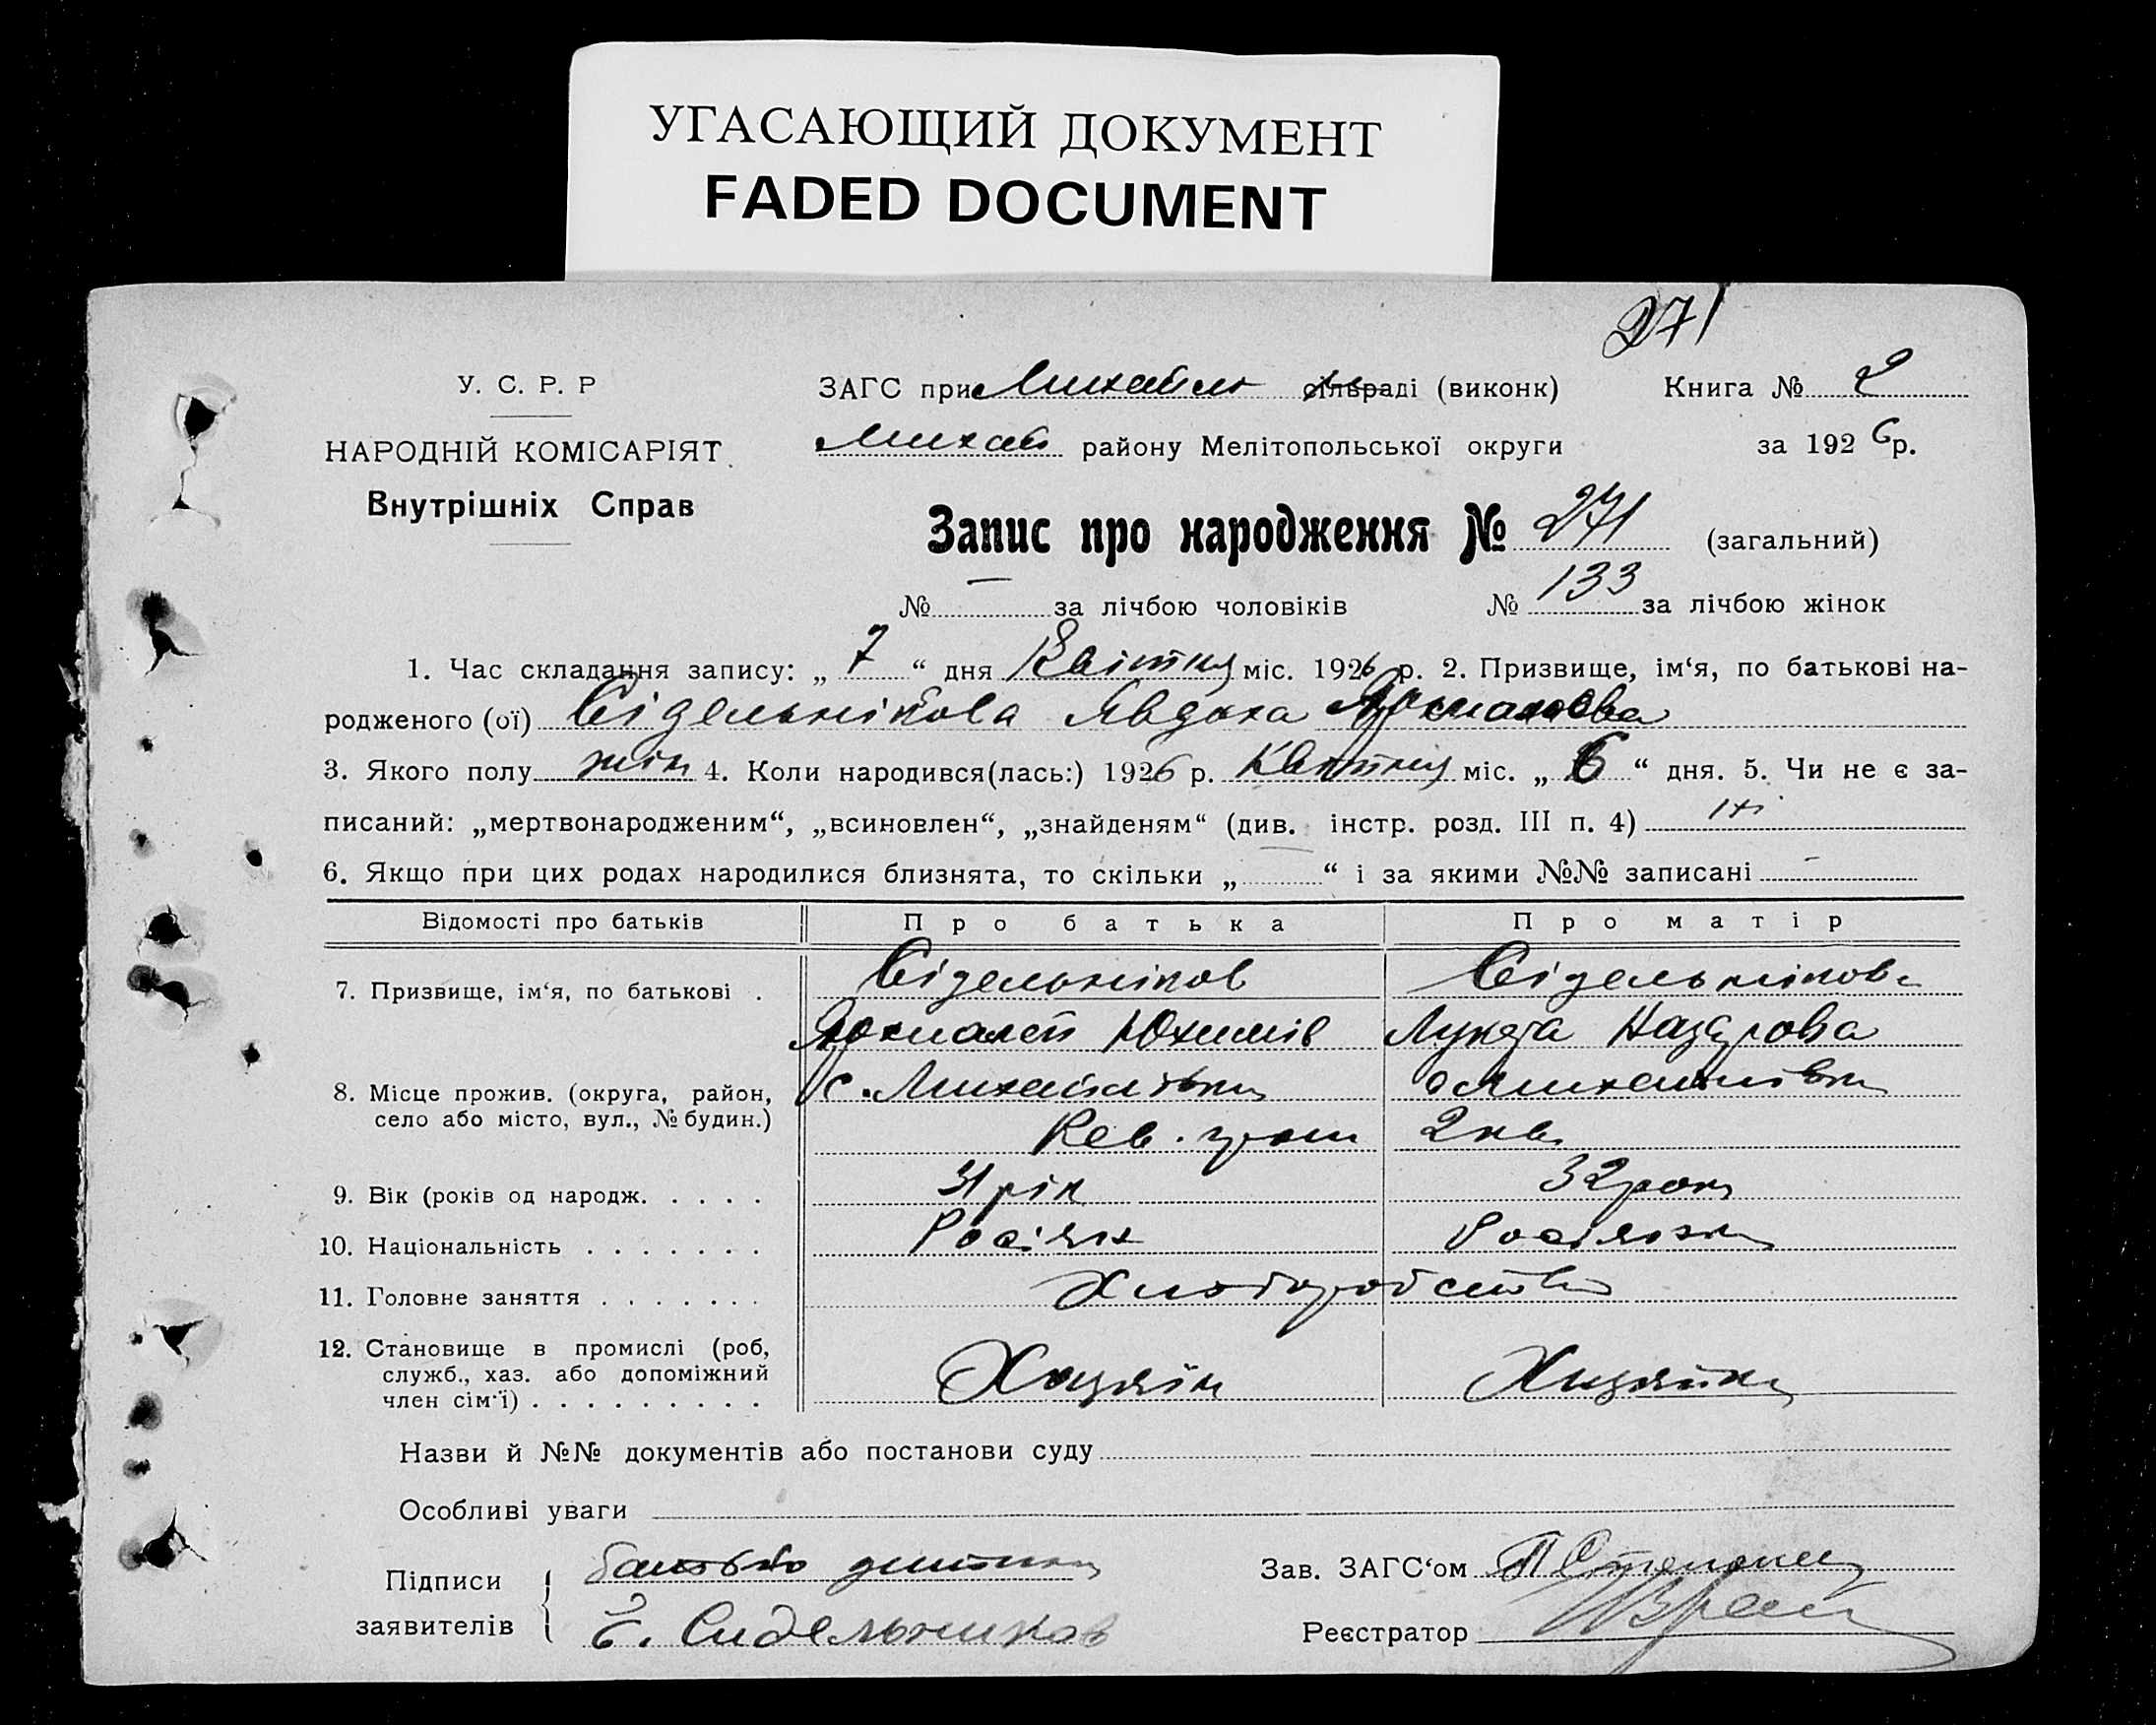 УГАСАЮЩИЙ ДОКУМЕНТ
FADED DOCUMENT
271
У. С. Р. Р
НАРОДНІЙ КОМІСАРІЯТ.
Внутрішніх Справ
ЗАГС при Михайл сільраді (виконк) Книга № 2
Михай району Мелітопольської округи за 1926 р.
Запис про народження № 271 (загальний)
№ — за лічбою чоловіків № 133 за лічбою жінок
1. Час складання запису: „ 7 “ дня Квітня міс. 1926 р. 2. Призвище, ім‘я, по батькові на-
родженого (ої) Сідельнікова Явдоха
3. Якого полу жін 4. Коли народився(лась:) 1926 р. Квітня міс. „ 6 “ дня. 5. Чи не є за-
писаний: „мертвонародженим“, „всиновлен“, „знайденям“ (див. інстр. розд. III п. 4) ні
6. Якщо при цих родах народилися близнята, то скільки „ “ і за якими №№ записані –
Відомості про батьків Про батька Про матір
7. Призвище, ім‘я, по батькові . Сідельніков Сідельнікова
Юхимів Лукєя Назарова
8. Місце прожив. (округа, район, село або місто, вул., № будин.) с. Михайлівка с Михайлівка
Рев. 2 кв.
9. Вік (років од народж. . . . . 31 рік 32 роки
10. Національність . . . . . . . Росіян Росіянка
11. Головне заняття . . . . . . . Хліборобство
12. Становище в промислі (роб, служб., хаз. або допоміжний член сім'ї) . . . . . . . . . Хазяїн Хазяйка
Назви й №№ документів або постанови суду
Особливі уваги
Підписи заявителів батько дитини
Е. Сидельников
Зав. ЗАГС‘ом
Реєстратор